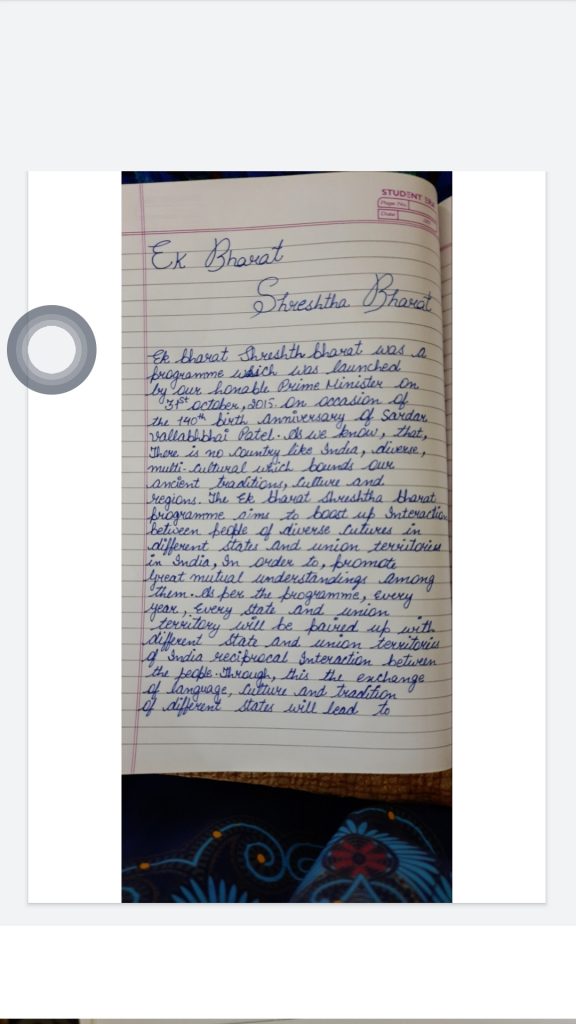 STUDENT
Page No.
Date
Ek Bharat
Shreshtha Bharat
Ek bharat Shreshth bharat was a
programme which was launched
by our honable Prime Minister on
31st october, 2015. on occasion of
the 140th birth anniversary of Sardar
vallabhbhai Patel. As we know, that,
There is no country like India, diverse,
multi-cultural which bounds our
ancient traditions, culture and
regions. The Ek bharat shreshtha bharat
programme aims to boost up Interaction
between people of diverse cutures in
different states and union territories
in India, In order to, promote
great mutual understandings among
them. As per the programme, every
year, Every state and union
territory will be paired up with
different state and union territories
of India reciprocal Interaction between
the people. Through, this the exchange
of language, culture and tradition
of different states will lead to